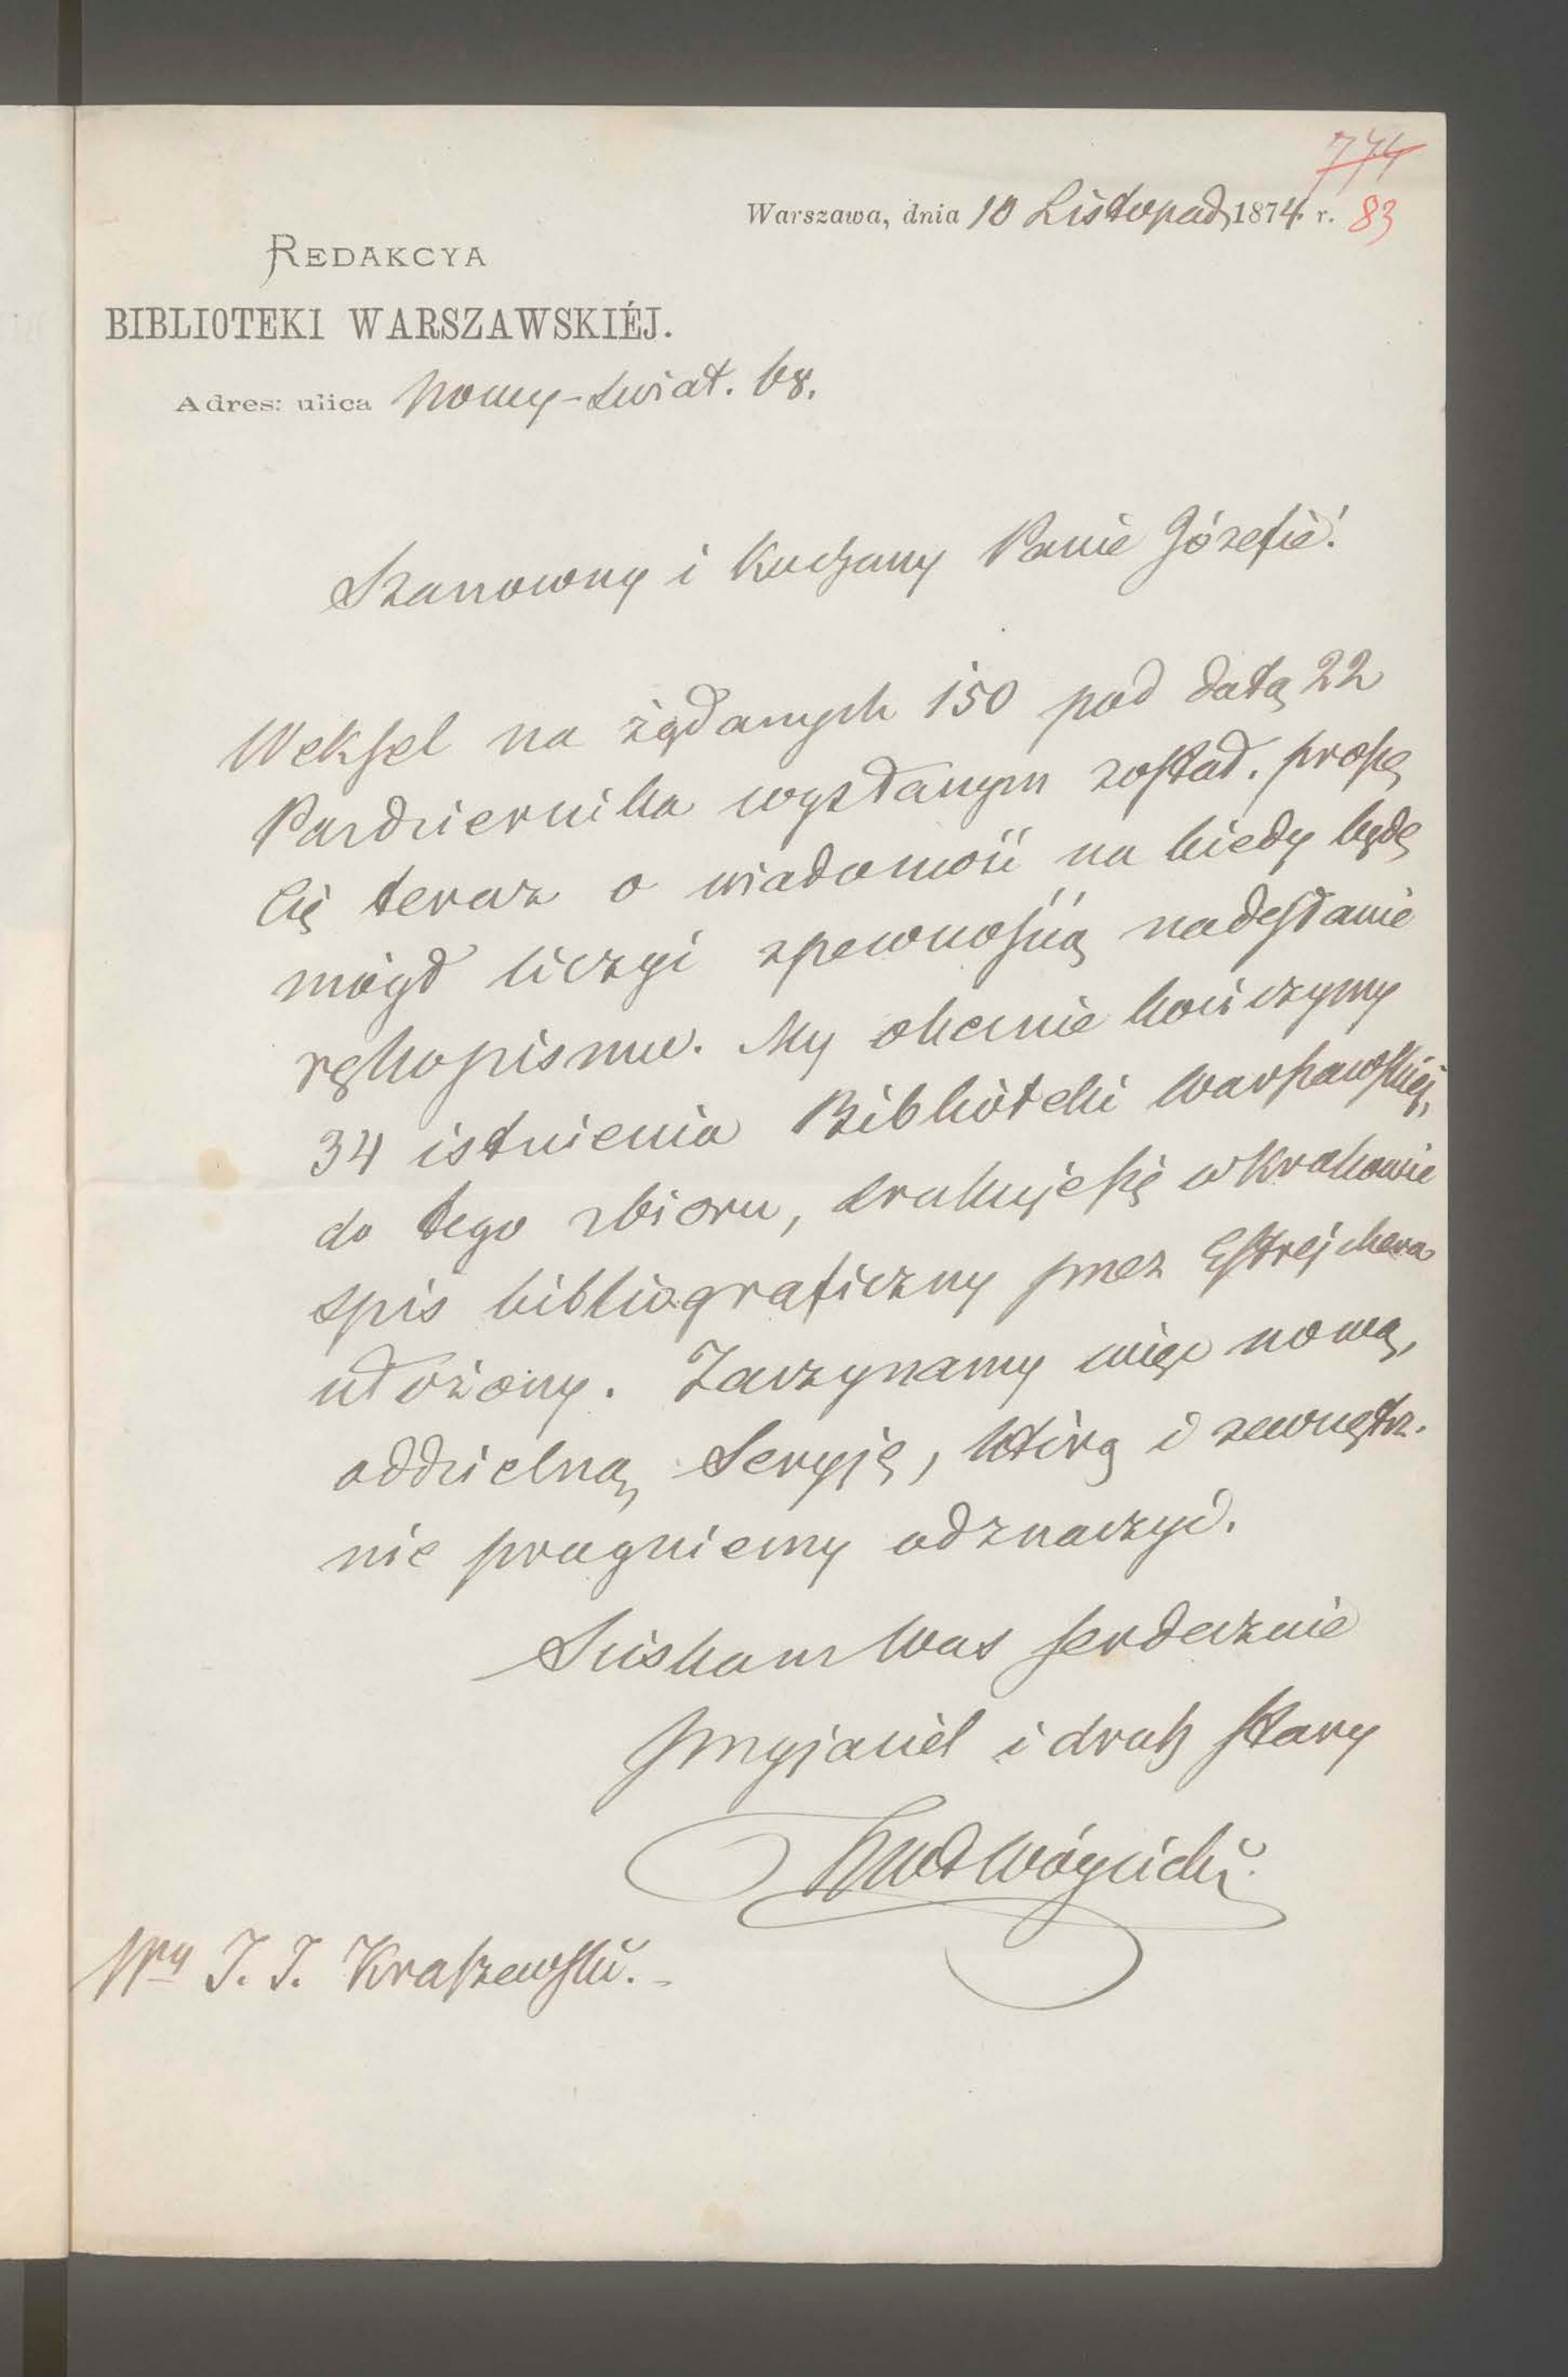 774
Warszawa, dnia 10 Listopad, 1874 r. 83
REDAKCYA
BIBLIOTEKI WARSZAWSKIÉJ.
Adres: ulica Nowy-Świat. 68.
Szanowny i Kochany Panie Józefie!
Weksel na żądanych 150 pod datą 22
Pazdziernika wysłanym został. proszę
Cię teraz o wiadomość na kiedy będę
mógł liczyć zpewnością nadesłanie
rękopismu. My obecnie kończymy
34 istnienia Biblioteki Warszawskiej,
do tego zbioru, drukuje się w Krakowie
spis bibliograficzny przez Estrejchera
ułożony. Zaczynamy więc nową,
oddzielną Seryję, którą i zewnętrz.
nie pragniemy odznaczyć.
Sciskam Was serdecznie
przyjaciel i druh stary
KWł Wóycicki
Wny J. I. Kraszewski.